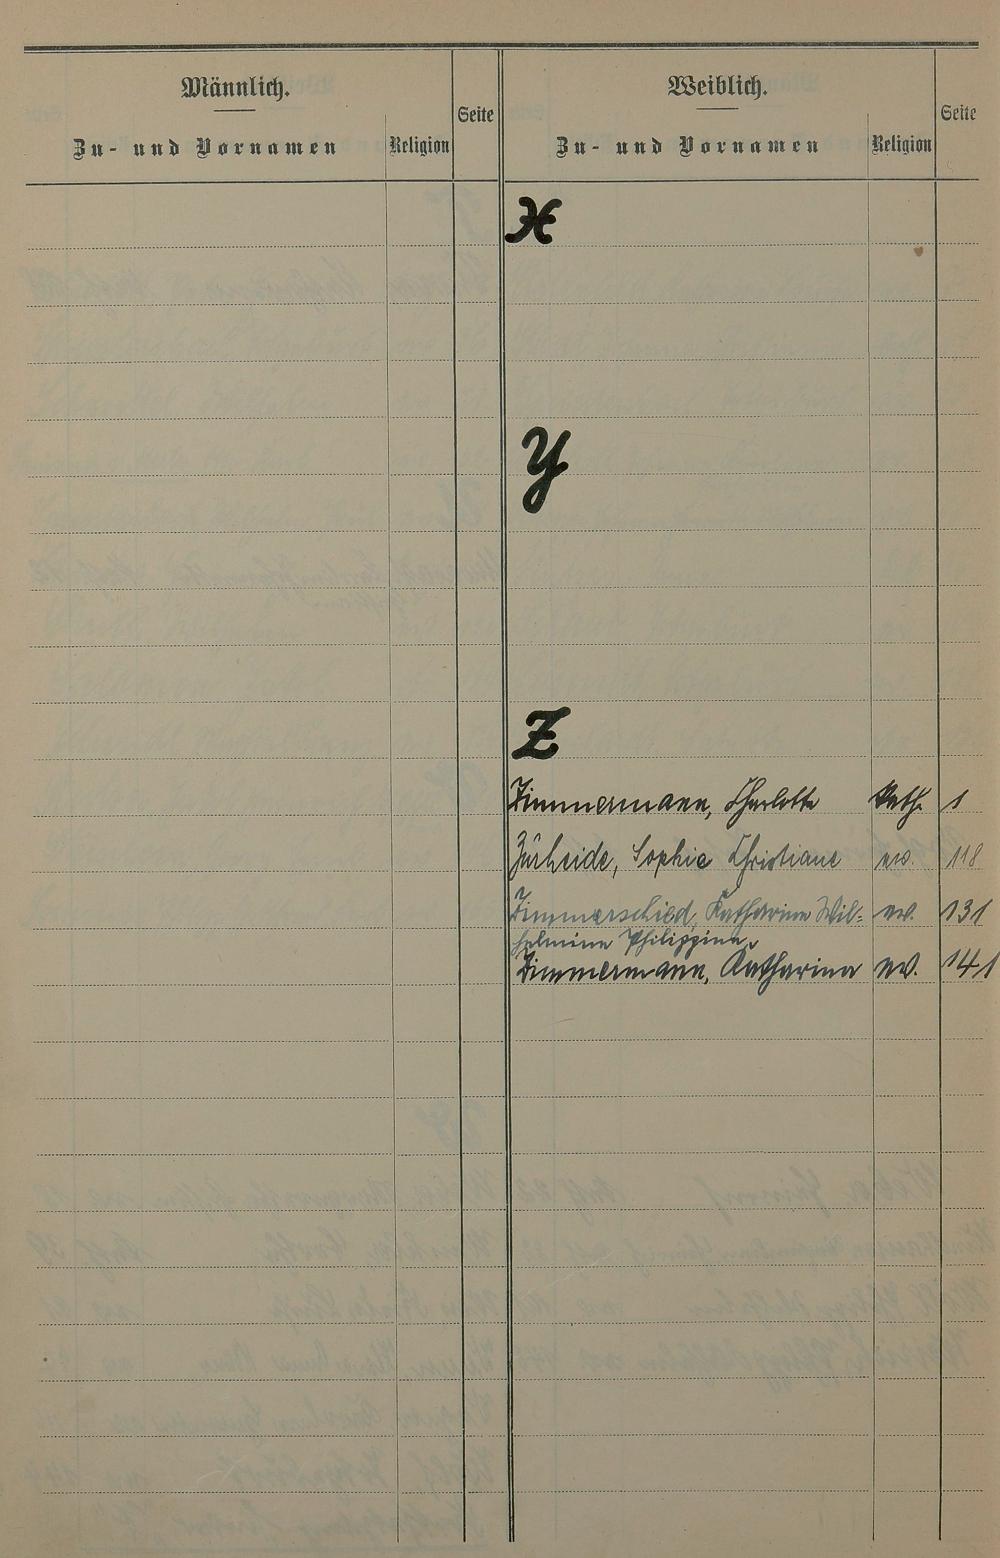 Männlich.
Zu- und Vornamen
Religion
Seite
Weiblich.
Zu- und Vornamen
Religion
Seite
X
Y
Z
Zimmermann, Charlotte kath. 1
Zürheide, Sophie Christiane ev. 118
Zimmerschied, Katharina Wil=
helmine Philippine ev. 131
Zimmermann, Katharina ev. 141